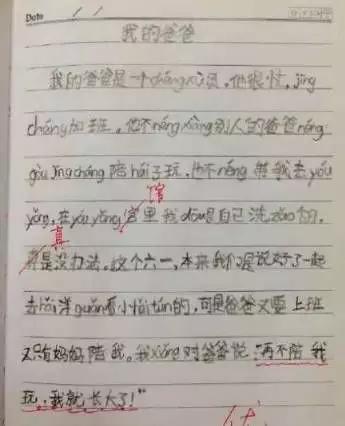 Date / /
我的爸爸
我的爸爸是一个chéngxù员,他很忙,jīng
cháng加班。他不néng xiàng别人的爸爸néng
gòu jīngcháng陪hái子玩,也不néng带我去yóu
yǒng,在yóu yǒng宫里我dōu是自己洗zǎo的,
馆
真
真是没办法。这个六一,本来我们是说好了一起
去hǎi洋guǎn看小hǎi tún的,可是爸爸又要上班
又只有妈妈陪我。我xiǎng对爸爸说:"再不陪我
玩,我就长大了!"
优